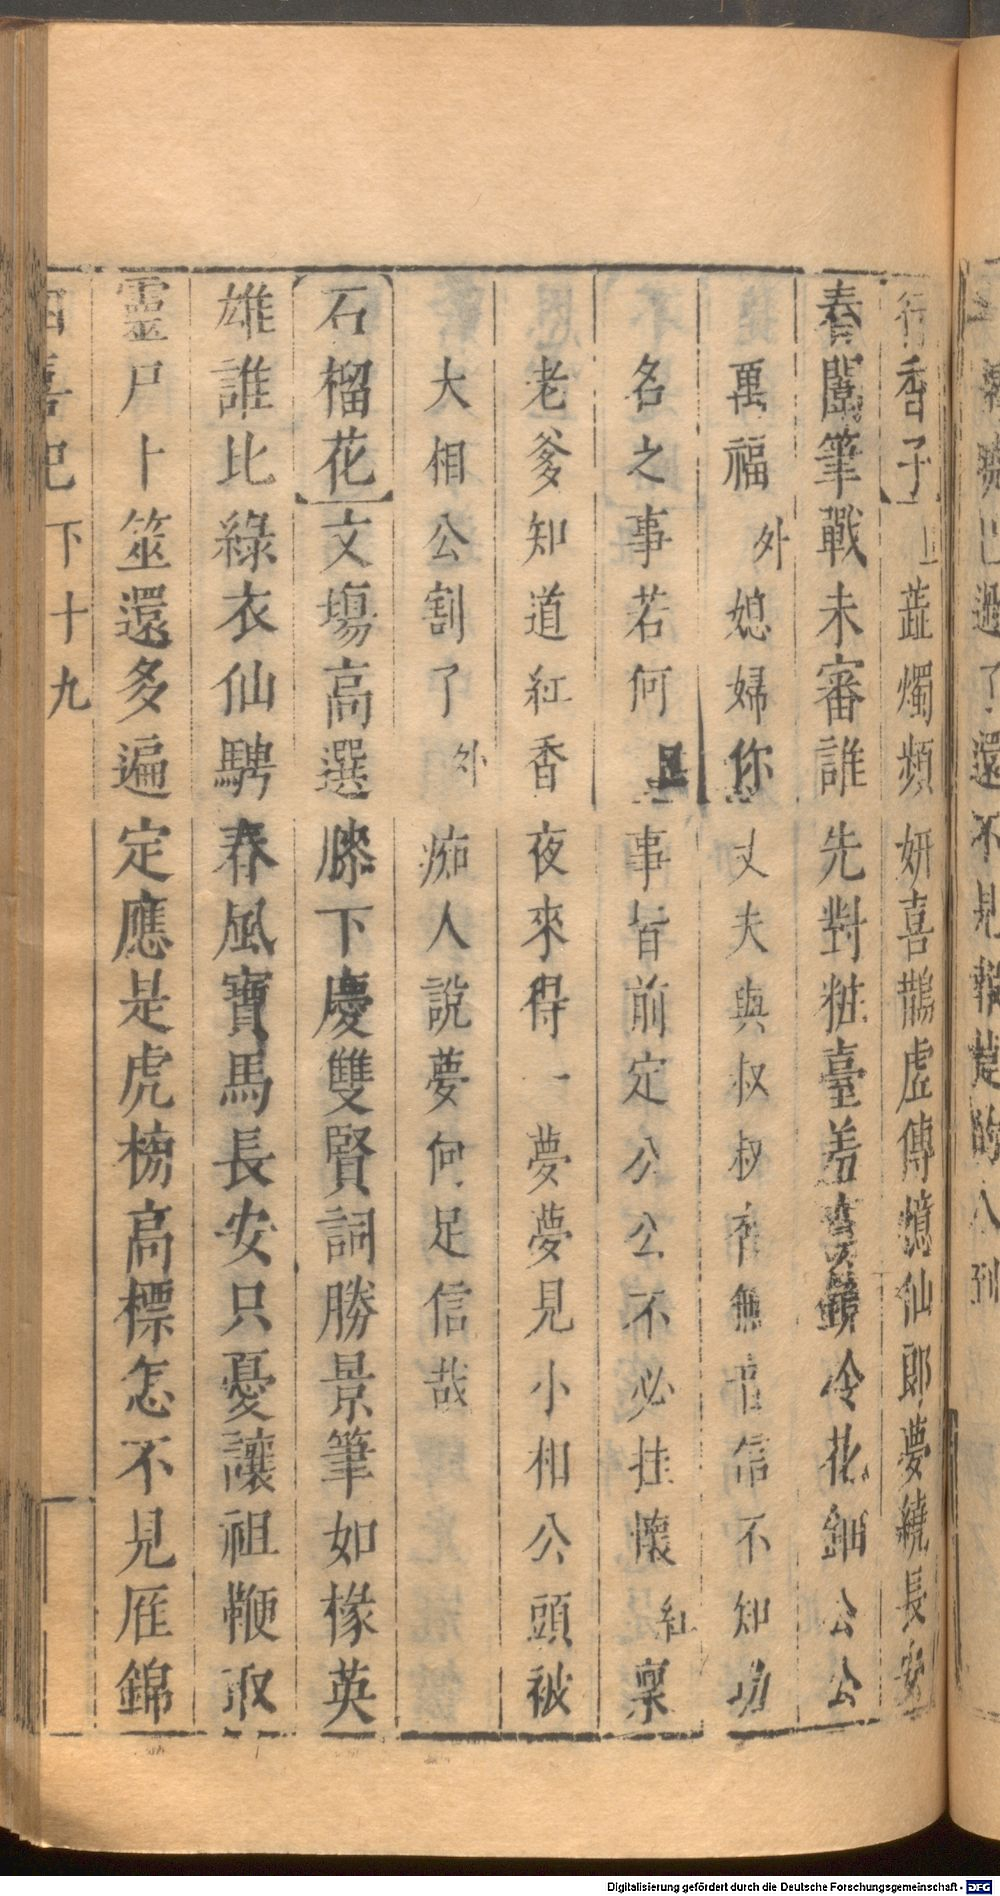 行香子上蕋燭頻妍喜鵲虛傳憶仙郎夢繞長安
春闈筆戰未審誰先對粧臺羞鸞鏡冷花鈿公公
萬福外媳婦你丈夫與叔叔有無音信不知功
名之事若何旦事皆前定公公不必挂懷紅稟
老爹知道紅香夜來得一夢夢見小相公頭被
大相公割了外痴人說夢何足信哉
石榴花文塲高選膝下慶雙賢詞勝景筆如椽英
雄誰比綠衣仙騁春風寶馬長安只憂讓祖鞭取
靈尸卜筮還多遍定應是虎榜高標怎不見雁錦
四喜記 下 十九
Digitalisierung gefördert durch die Deutsche Forschungsgemeinschaft - DFG